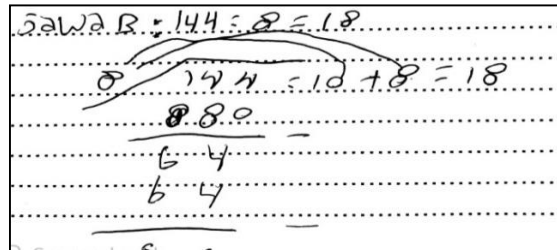 Jawab : 144 : 8 = 18
8 144 = 10 + 8 = 18
80 -
64
64 -